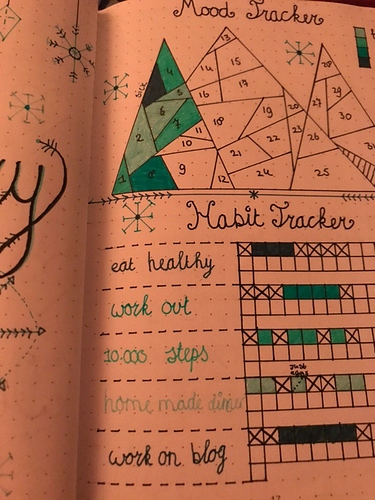 Mood Tracker
13
4
14
15
3
16
17
28
29
5
6
7
18
19
20
27
30
2
11
10
21
22
23
26
31
1
8
9
12
24
25
Habit Tracker
eat healthy
work out
10.000 steps
home made dinner
work on blog